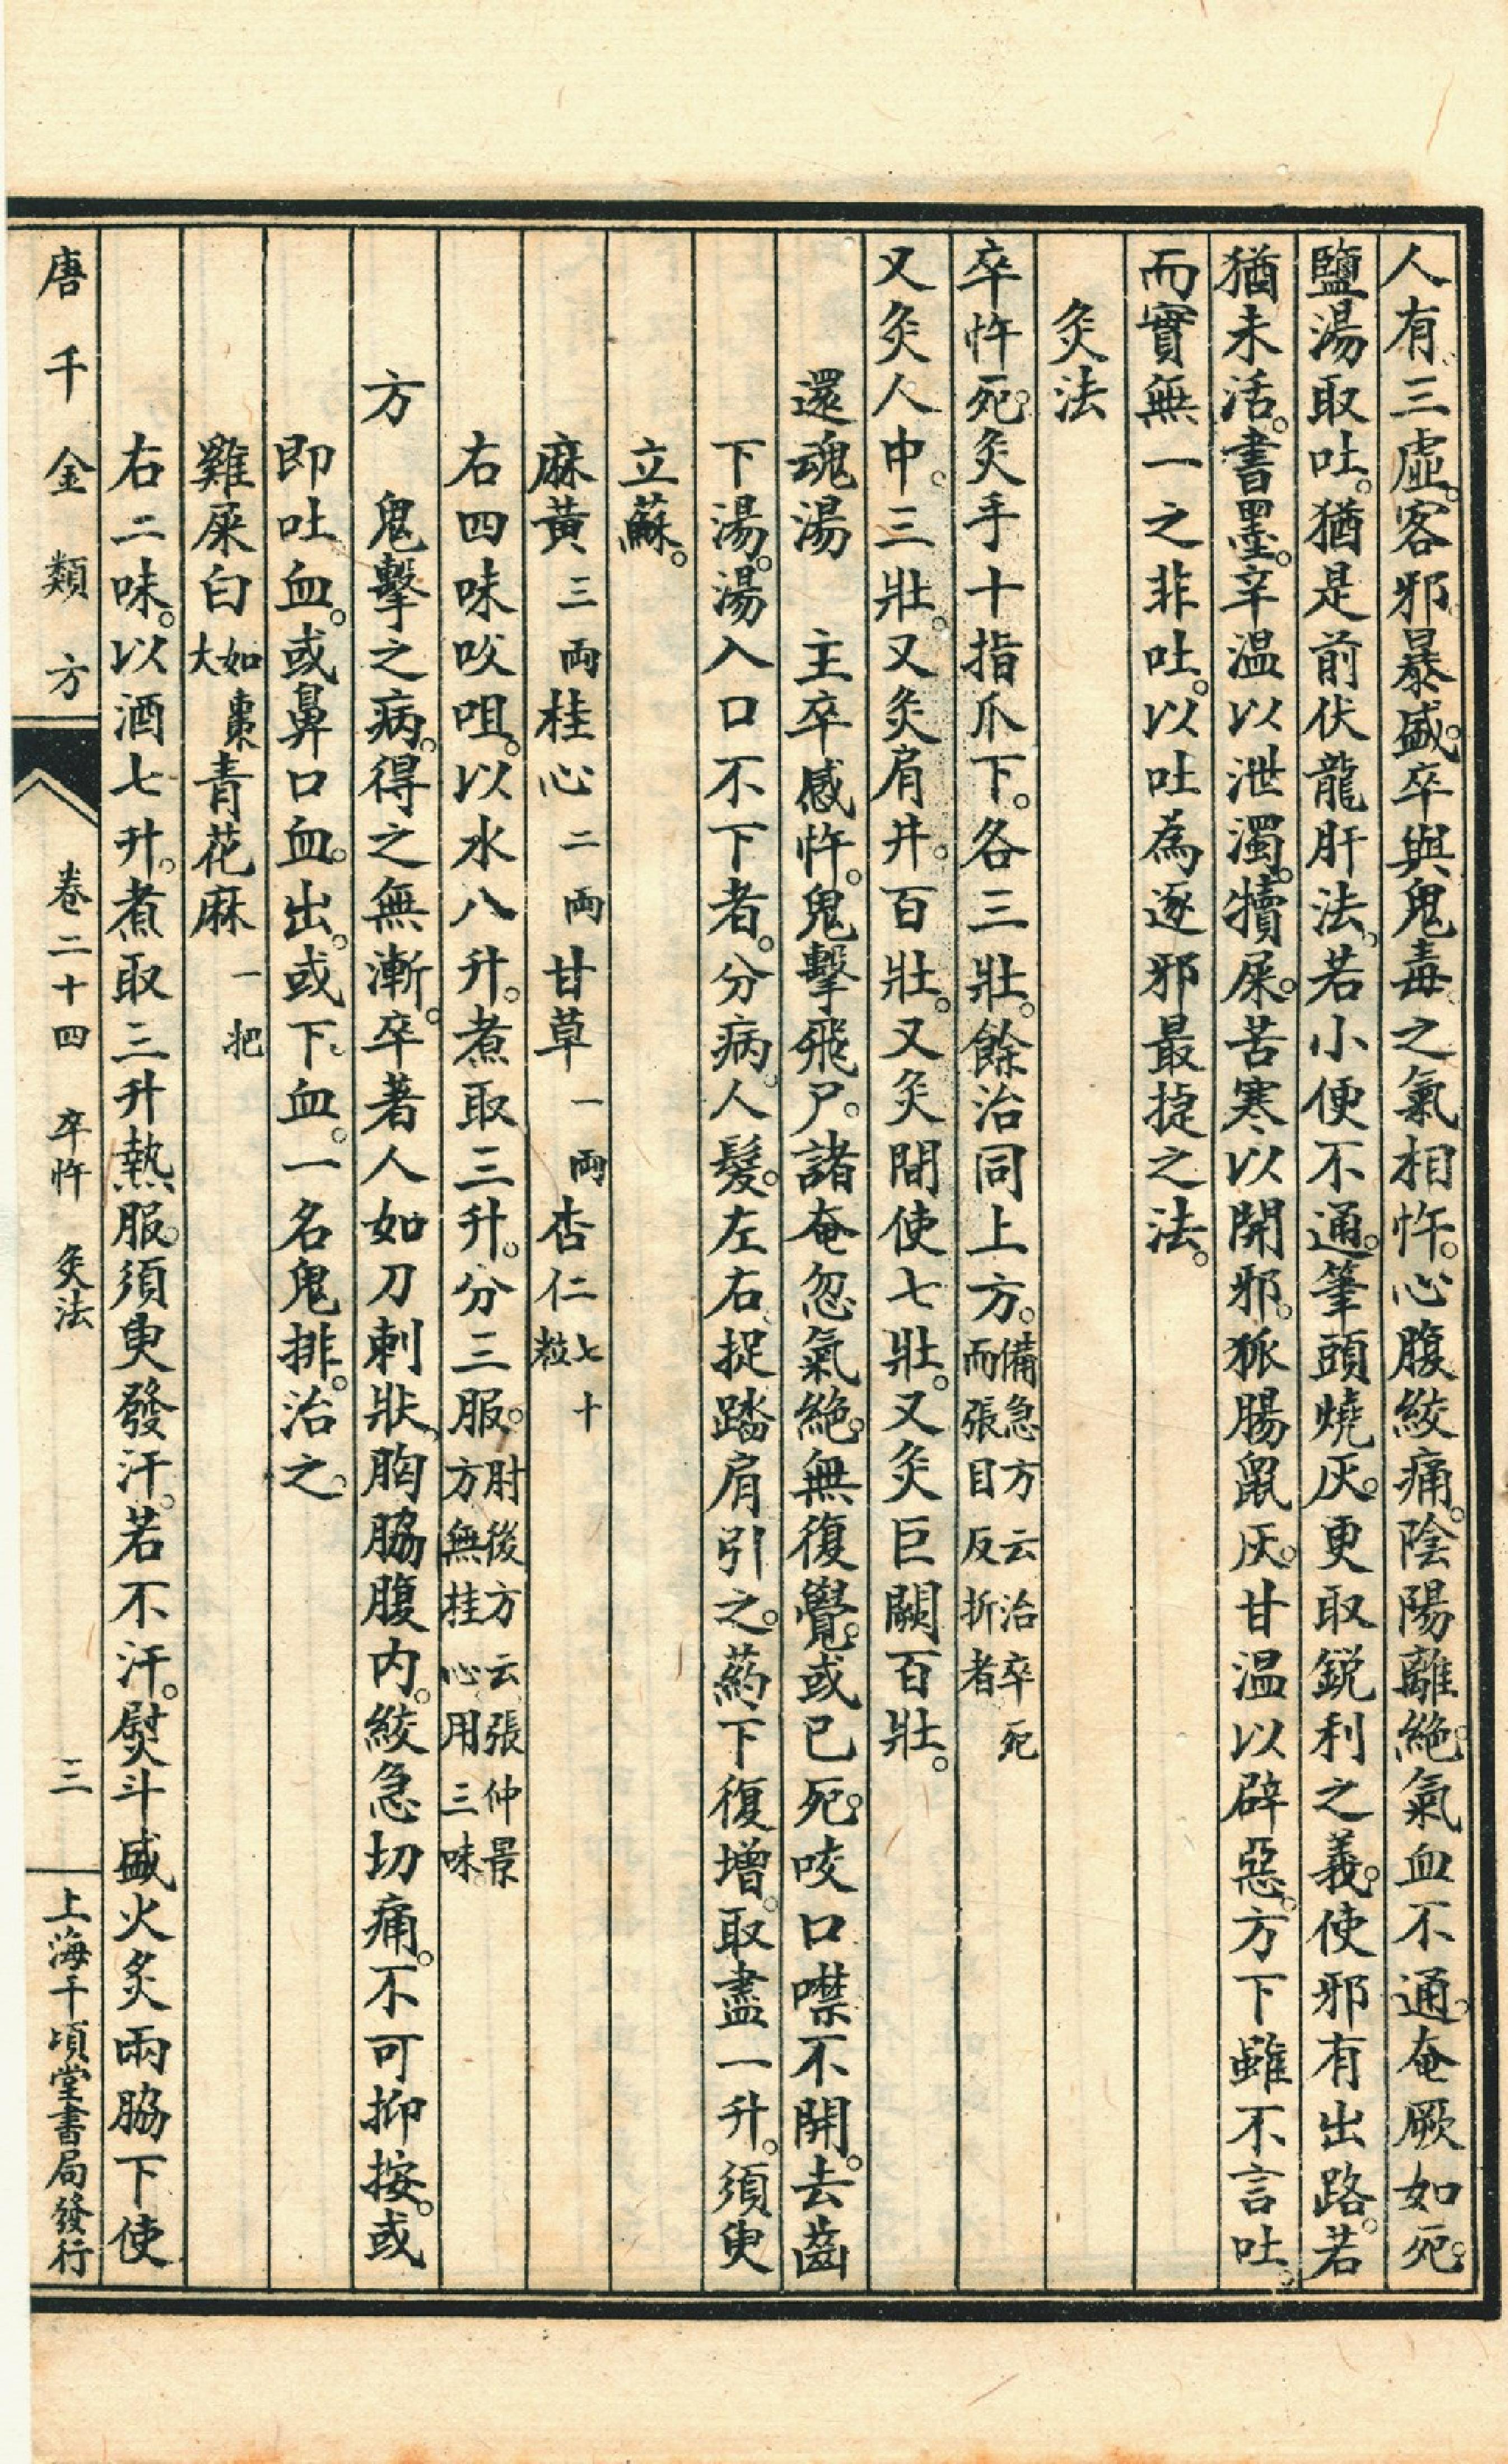 人有三虛。客邪暴盛。卒與鬼毒之氣相忤。心腹絞痛。陰陽離絶。氣血不通。奄厥如死。
鹽湯取吐。猶是前伏龍肝法。若小便不通。筆頭燒灰。更取鋭利之義。使邪有出路。若
猶未活。書墨。辛温以泄濁。犢屎。苦寒以開邪。狐腸鼠灰。甘温以辟惡。方下雖不言吐。
而實無一之非吐。以吐為逐邪最捷之法。
灸法
卒忤死。灸手十指爪下。各三壯。餘治同上方。備急方云治卒死而張目反折者
又灸人中。三壯。又灸肩井。百壯。又灸間使七壯。又灸巨闕百壯。
還魂湯　主卒感忤。鬼擊飛尸。諸奄忽氣絶。無復覺。或已死。咬口噤不開。去齒
下湯。湯入口不下者。分病人髮。左右捉踏肩引之。葯下復增。取盡一升。須臾
立蘇。
麻黃三兩桂心二兩甘草一兩杏仁七十粒
右四味㕮咀。以水八升。煮取三升。分三服。肘後方云張仲景方無桂心用三味
鬼擊之病。得之無漸。卒著人如刀刺狀。胸脇腹内。絞急切痛。不可抑按。或
即吐血。或鼻口血。出。或下血。一名鬼排。治之。
方
雞屎白如棗大青花麻一把
右二味。以酒七升。煮取三升熱服。須臾發汗。若不汗。熨斗盛火炙兩脇下使
唐千金類方　卷二十四　卒忤　灸法　三　上海千頃堂書局發行